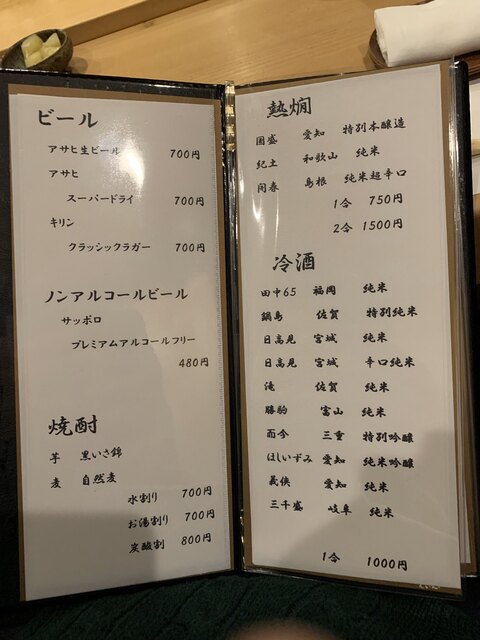 ビール
アサヒ生ビール 700円
アサヒ
スーパードライ 700円
キリン
クラッシックラガー 700円
ノンアルコールビール
サッポロ
プレミアムアルコールフリー
480円
焼酎
芋 黒いさ錦
麦 自然麦
水割り 700円
お湯割り 700円
炭酸割 800円
熱燗
国盛 愛知 特別本醸造
紀土 和歌山 純米
開春 島根 純米超辛口
1合 750円
2合 1500円
冷酒
田中65 福岡 純米
鍋島 佐賀 特別純米
日高見 宮城 純米
日高見 宮城 辛口純米
滝 佐賀 純米
勝駒 富山 純米
而今 三重 特別吟醸
ほしいずみ 愛知 純米吟醸
義侠 愛知 純米
三千盛 岐阜 純米
1合 1000円